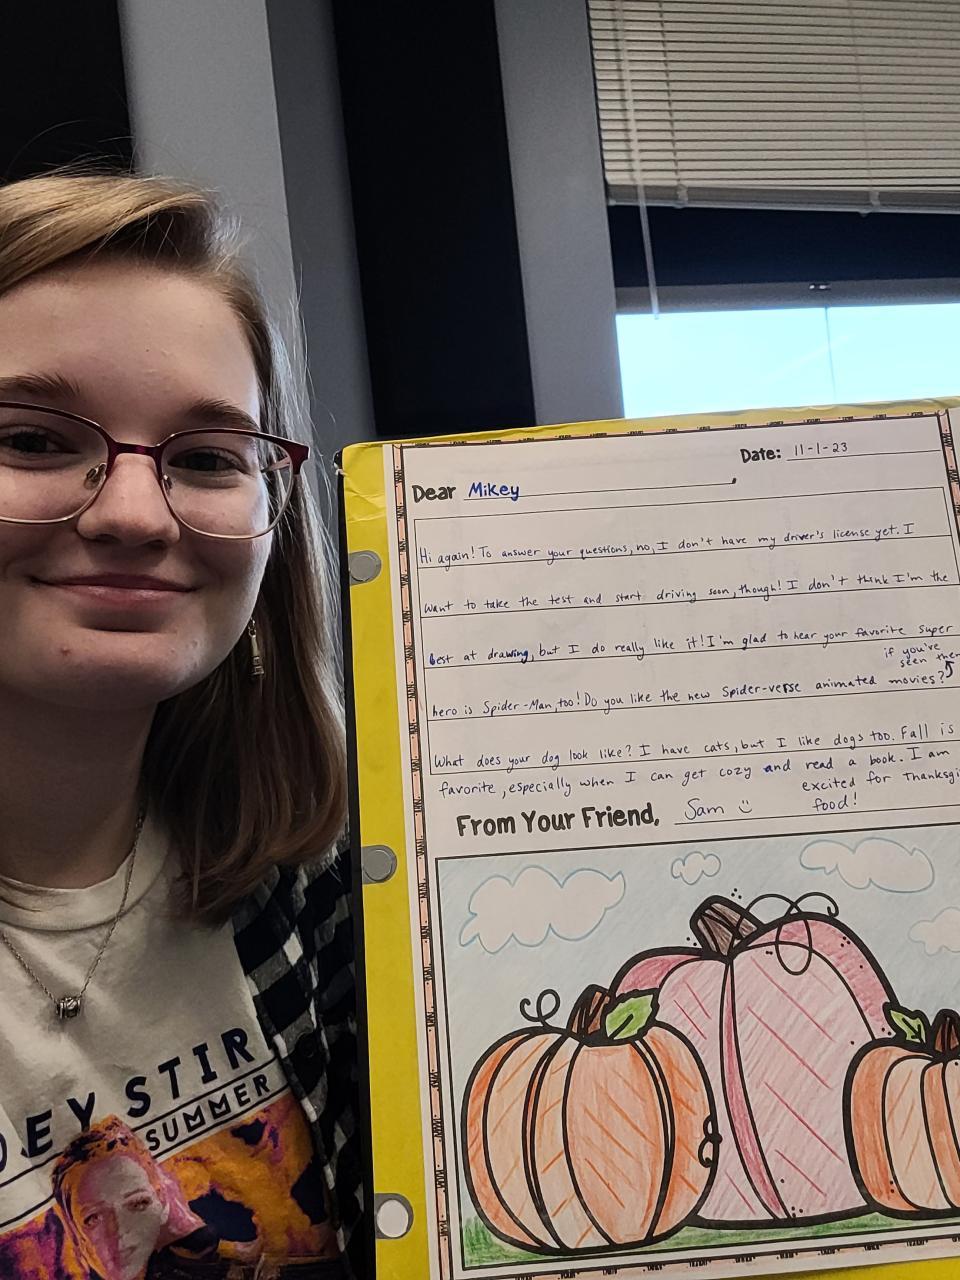 Date: 11-1-23
Dear Mikey,
Hi again! To answer your questions, no, I don't have my driver's license yet. I
want to take the test and start driving soon, though! I don't think I'm the
best at drawing, but I do really like it! I'm glad to hear your favorite super
if you've
seen them
hero is Spider-Man, too! Do you like the new Spider-verse animated movies?
What does your dog look like? I have cats, but I like dogs too. Fall is
favorite, especially when I can get cozy and read a book. I am
excited for Thanksgi
food!
From Your Friend, Sam
OEY STIR
SUMMER